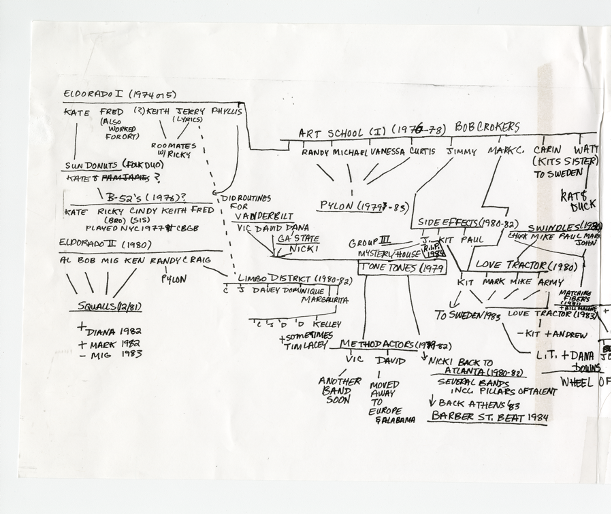 ELDORADO I (1974 or 5)
KATE FRED (?) KEITH JERRY PHYLLIS
(ALSO WORKED FOR ORT) (LYRICS)
ROOMATES
W/ RICKY
SUN DONUTS (FOLK DUO)
KATE &
B-52'S (1976)?
KATE RICKY CINDY KEITH FRED
(BRO) (SIS)
PLAYED NYC 1977 CBGB
ELDORADO II (1980)
AL BOB MIG KEN RANDY CRAIG
PYLON
SQUALLS (12/81)
+ DIANA 1982
+ MARK 1982
- MIG 1983
DID ROUTINES
FOR
VANDERBILT
VIC DAVID DANA
GA STATE
NICKI
LIMBO DISTRICT (1980-82)
C J DAVEY DOMINIQUE
MARGARITA
C S D D KELLEY
+ SOMETIMES
TIM LACEY
ART SCHOOL (I) (1976-78) BOB CROKERS
RANDY MICHAEL VANESSA CURTIS JIMMY MARK C. CARIN WATT
(KITS SISTER)
TO SWEDEN
KAT &
DUCK
PYLON (1979-83)
SIDE EFFECTS (1980-82)
KIT PAUL
SWINDLES
MIKE PAUL MARK
JOHN
GROUP III
MYSTERY/HOUSE
TONE TONES (1979
LOVE TRACTOR (1980)
KIT MARK MIKE ARMY
TO SWEDEN 1983
LOVE TRACTOR (1983)
- KIT + ANDREW
L.T. + DANA
DOWNS
WHEEL OF
METHOD ACTORS (1979-82)
VIC DAVID
ANOTHER
BAND
SOON
MOVED
AWAY
TO
EUROPE
& ALABAMA
NICKI BACK TO
ATLANTA (1980-82)
SEVERAL BANDS
INCL PILLARS OF TALENT
BACK ATHENS '83
BARBER ST. BEAT 1984